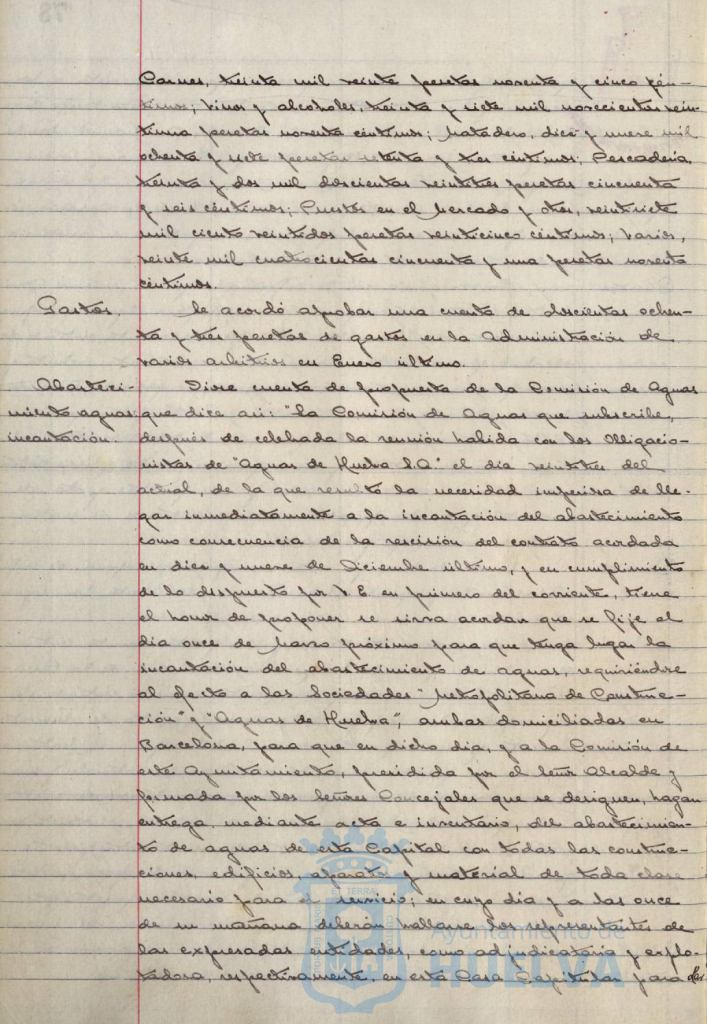 Carnes, treinta mil veinte pesetas noventa y cinco cén-
timos; vinos y alcoholes, treinta y siete mil novecientas vein-
tiuna pesetas noventa céntimos; Matadero, diez y nueve mil
ochenta y siete pesetas setenta y tres céntimos; Pescadería,
treinta y dos mil doscientas veintitres pesetas cincuenta
y seis céntimos; Puestos en el Mercado y otros, veintisiete
mil ciento veintidos pesetas veinticinco céntimos; varios,
veinte mil cuatrocientas cincuenta y una pesetas noventa
céntimos.
Gastos. Se acordó aprobar una cuenta de doscientas ochen-
ta y tres pesetas de gastos en la Administración de
varios arbitrios en Enero último.
Abasteci- Diose cuenta de propuesta de la Comisión de Aguas
miento aguas: que dice así: "La Comisión de Aguas que subscribe,
incautación. después de celebrada la reunión habida con los Obligacio-
nistas de "Aguas de Huelva S.A." el día veintitres del
actual, de la que resultó la necesidad imperiosa de lle-
gar inmediatamente a la incautación del abastecimiento
como consecuencia de la rescisión del contrato acordada
en diez y nueve de Diciembre último, y en cumplimiento
de lo dispuesto por V. E. en primero del corriente, tiene
el honor de proponer se sirva acordar que se fije el
día once de Marzo próximo para que tenga lugar la
incautación del abastecimiento de aguas, requiriéndose
al efecto a las Sociedades "Metropolitana de Construc-
ción" y "Aguas de Huelva", ambas domiciliadas en
Barcelona, para que en dicho día, y a la Comisión de
este Ayuntamiento, presidida por el Señor Alcalde y
formada por los Señores Concejales que se designen, hagan
entrega, mediante acta e inventario, del abastecimien-
to de aguas de esta Capital con todas las construc-
ciones, edificios, aparatos y material de toda clase
necesario para el servicio; en cuyo día y a las once
de su mañana deberán hallarse los representantes de
las expresadas entidades, como adjudicataria y explo-
tadora, respectivamente, en esta Casa Capitular para
Ayuntamiento de
HUELVA